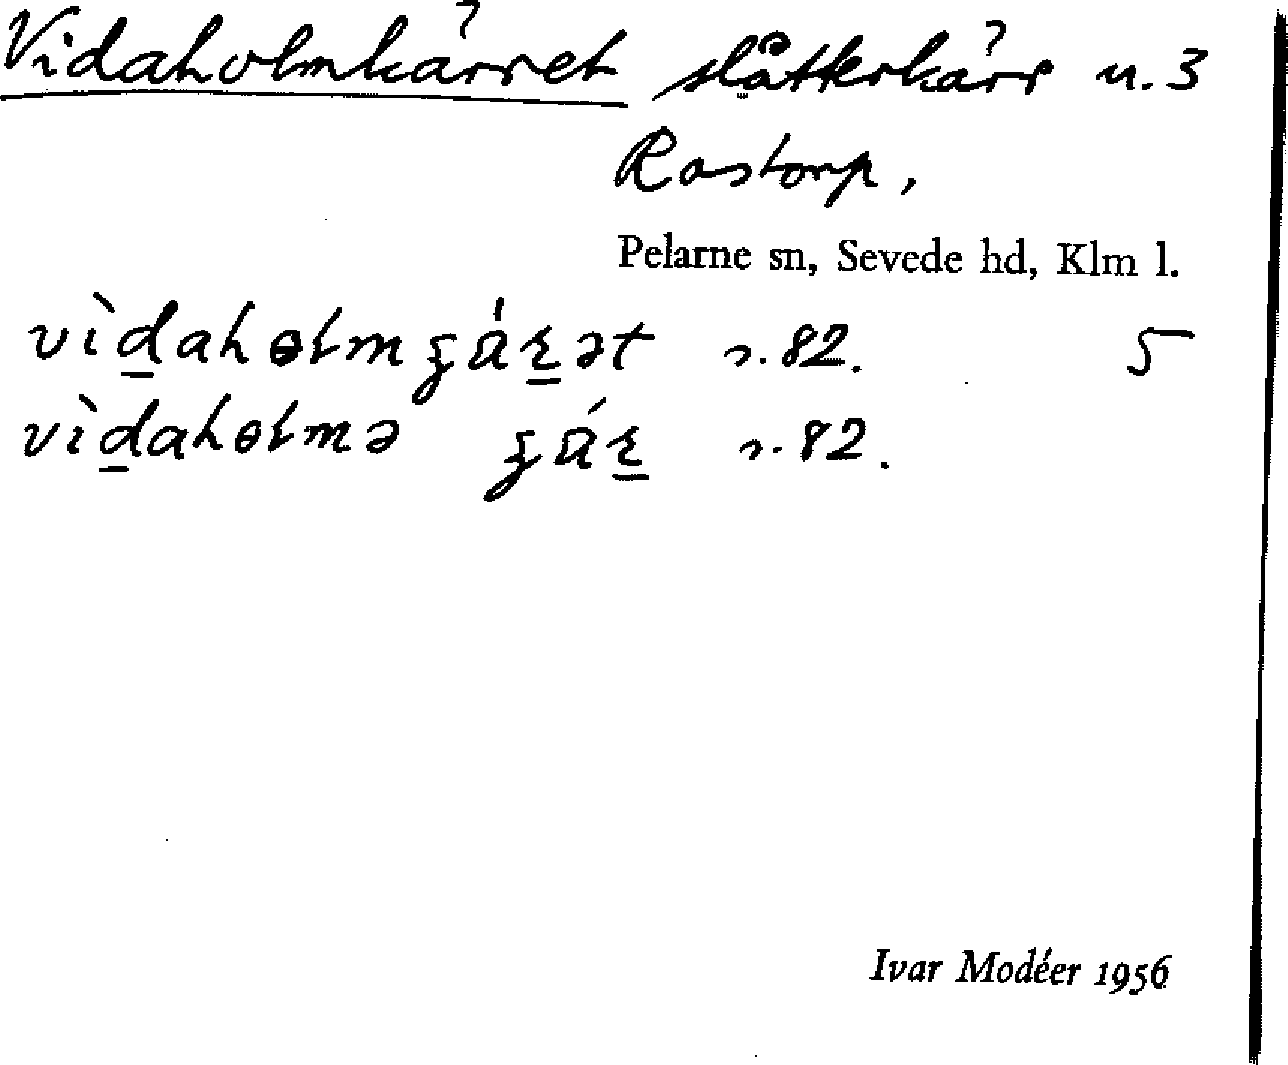 Vidaholmkärret slåtterkärr u. 3
Rostorp,
Pelarne sn, Sevede hd, Klm l.
vìd̲aholmʓár̲ət s. 82. 5
vìd̲aholmə ʓár̲ s. 82.
Ivar Modéer 1956